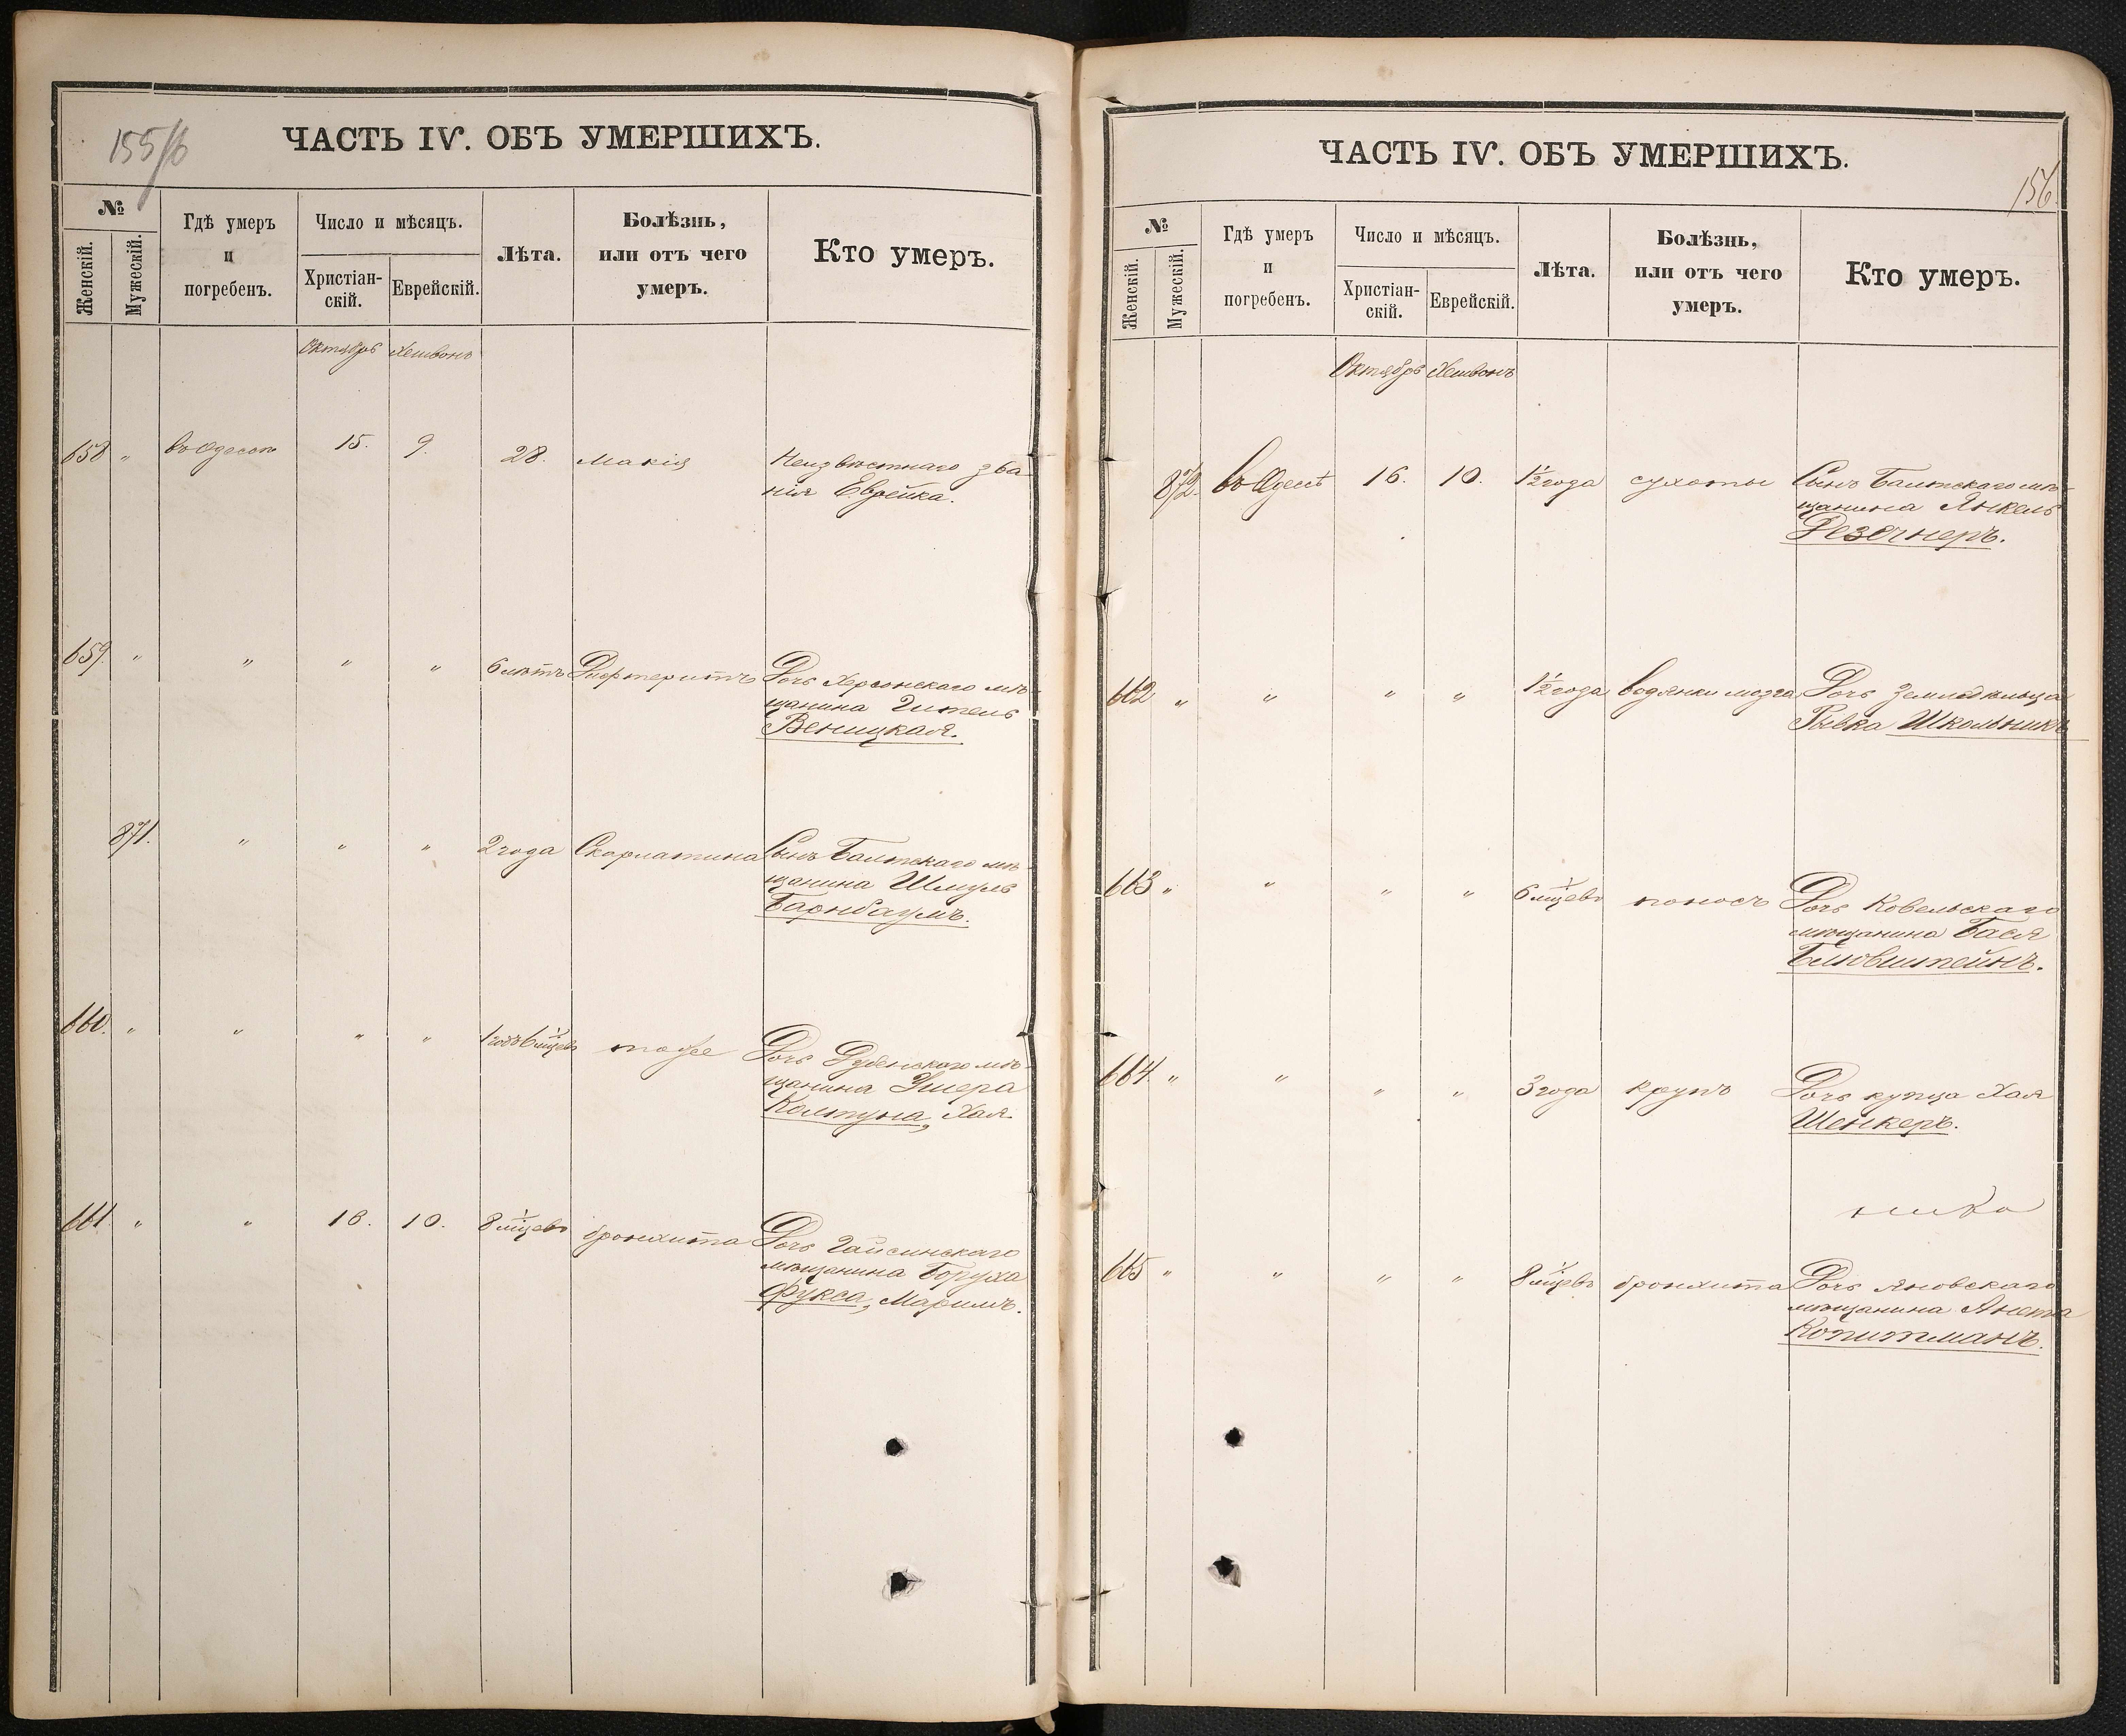 155/б
ЧАСТЬ IV. ОБЪ УМЕРШИХЪ.
№
Женскій.
Мужескій.
Гдѣ умеръ
и
погребенъ.
Число и мѣсяцъ.
Христіан-
скій.
Еврейскій.
Лѣта.
Болѣзнь,
или отъ чего
умеръ.
Кто умеръ.
Октябрь Хешвонъ
658 " въ Одессѣ 15. 9. 28. Неизвѣстнаго зва
нія Еврейка.
659. " " " " 6 лѣтъ Дифтеритъ Дочь Херсонскаго мѣ-
щанина Гитель
Веницкая.
871. " " " 2 года Скарлатина Сынъ Балтскаго мѣ-
щанина Шмуль
Барнбаумъ.
660. " " " " 1 годъ 6 мѣсцевъ тоже Дочь Дубенскаго мѣ-
щанина Ушера
Колтуна, Хая.
661 " " 16. 10. 8 мѣсцевъ бронхита Дочь Гайсинскаго
мѣщанина Боруха
Фукса, Маримъ.
156
ЧАСТЬ IV. ОБЪ УМЕРШИХЪ.
№
Женскій.
Мужескій.
Гдѣ умеръ
и
погребенъ.
Число и мѣсяцъ.
Христіан-
скій.
Еврейскій.
Лѣта.
Болѣзнь,
или отъ чего
умеръ.
Кто умеръ.
Октябрь Хешвонъ
872. въ Одессѣ 16. 10. 1½ года сухоты Сынъ Балтскаго мѣ-
щанина Янкель
Резечнеръ.
662 " " " " 1½ года водянки мозга Дочь земледѣльца
Рывка Школьникъ
663 " " " " 6 мѣсцевъ поносъ Дочь Ковельскаго
мѣщанина Бася
Бловштейнъ.
664 " " " " 3 года крупъ Дочь купца Хая
Шенкеръ.
665 " " " " 8 мѣсцевъ бронхита Дочь Яновскаго
мѣщанина Анета
Копитманъ.